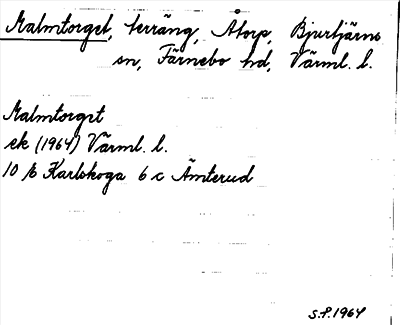 Malmtorget, terräng, Åtorp, Bjurtjärns
sn, Färnebo hd, Värml. l.
Malmtorget
ek (1964) Värml. l.
10 E Karlskoga 6 c Ämterud
S.F. 1964